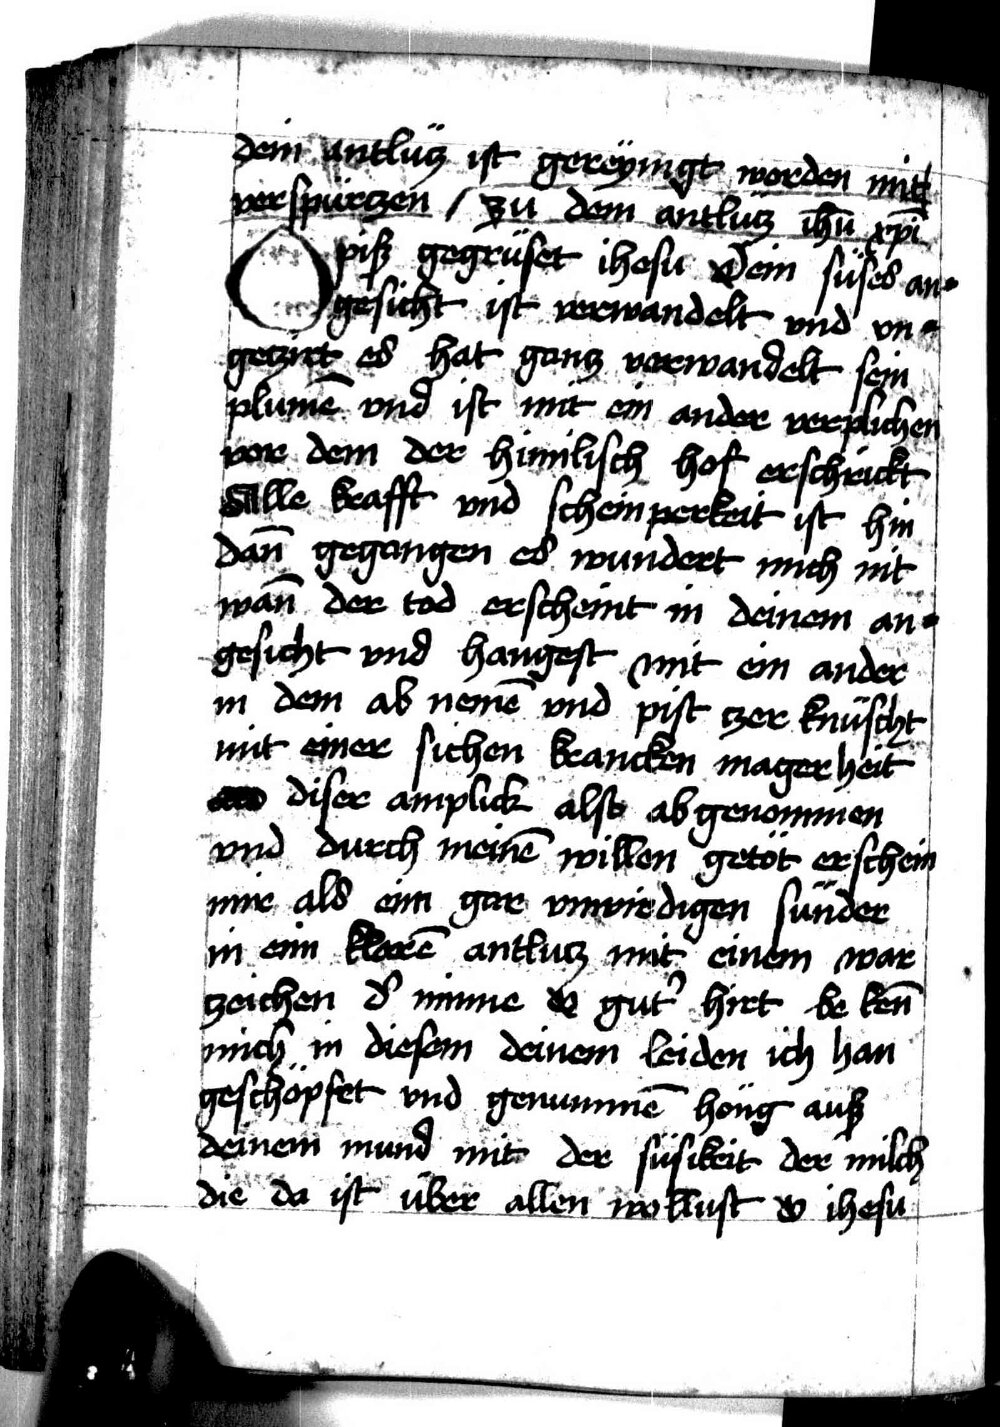 dein antlütz ist gereynigt worden mit
verspürczen / Zu dem antlütz ihū xp̄i
O piß gegrüset ihesu Dein süses an-
gesicht ist verwandelt vnd vn-
geczirt es hat gantz verwandelt sein
plumē vnd ist mit ein ander verplichen
vor dem der himilisch hof erschrickt
Alle krafft vnd scheinperkeit ist hin
dan̄ gegangen es wundert mich nit
wan̄ der tod erscheint in deinem an-
gesicht vnd hangest mit ein ander
in dem ab nemē vnd pist czer knüscht
mit einer sichen krancken magerheit
diser amplick also abgenommen
vnd durch meinē willen getöt erschein
mir als eim gar vnwirdigen sünder
in eim klarē antlutz mit einem war
czeichen d' minne O gut' hirt be ken̄
mich in diesem deinem leiden ich han
geschöpfet vnd genummē hönig auß
deinem mund mit der süsikeit der milch
die da ist über allen wollust O ihesu